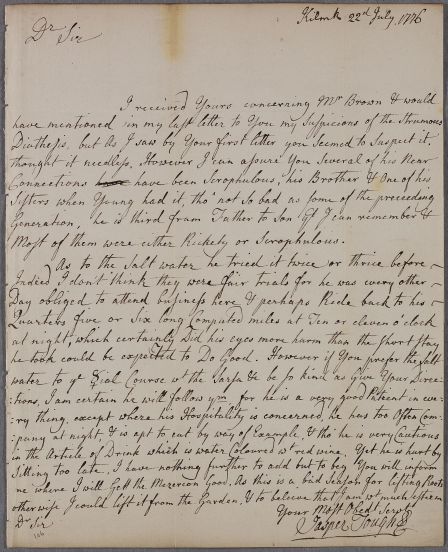 Kilmk 22d July. 1776
Dr Sir
I received Yours concerning Mr Brown & would
have mentioned in my last letter to You my Suspicions of the Strumous
Diathesis, but As I saw by Your first letter you Seemed to Suspect it,
thought it needless. However I can assure You Several of his Near
Connections have been Scrophulous, his Brother & One of his
Sisters when Young had it, tho' not So bad as some of the preceeding
Generation, he is third from Father to Son yt I can remember &
Most of them were either Rickety or Scrophulous.
As to the Salt water he tried it twice or thrice before –
Indeed I dont think they were fair trials for he was every other –
Day obliged to attend business here & perhaps Ride back to his
Quarters five or Six long Computed miles at Ten or eleven o'clock
at night, which certainly Did his eyes more harm than the Short Stay
he took could be expected to Do Good. However if You prefer the Salt
water to yt Course wt the Sarsa & be so kind as Give Your Direc
:tions, I am certain he will follow ym for he is a very good Patient in eve-
:ry thing, except where his Hospitality is concerned, he has too Often Com-
:pany at night & is apt to eat by way of Example, & tho he is very Cautious
in the Article of Drink which is water Coloured wt red wine, Yet he is hurt by
Sitting too late. I have nothing further to add but to beg You will inform
me where I will Get the Mezereon Good. As this is a bad Season for lifting Roots
otherwise I could lift it from the Garden, & to believe that I am wt much esteem
Dr Sir
Your Most Obedt Servt
Jasper Tough